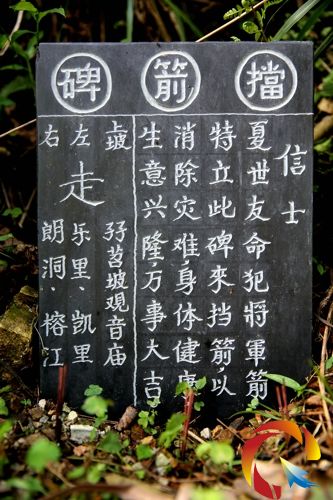 擋箭碑
信士
夏世友命犯將軍箭
特立此碑來挡箭,以
消除灾难,身体健康
生意兴隆万事大吉
上坡 孖苕坡观音庙
左 走 乐里、凯里
右 朗洞、榕江